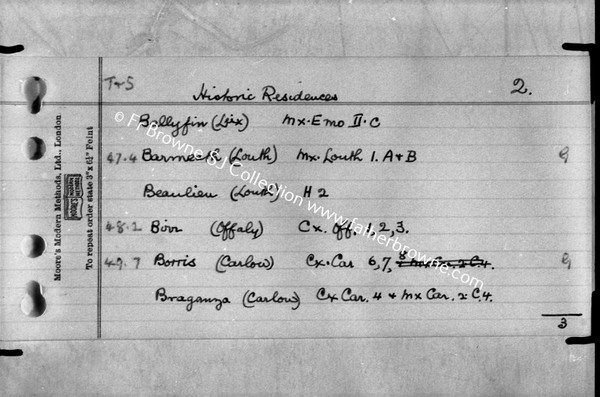 T+S Historic Residences 2.
Ballyfin (Leix) Mx. Emo II. C
47.4 Barmeath (Louth) Mx. Louth 1. A + B G
Beaulieu (Louth) H 2
48.2 Birr (Offaly) Cx. Off. 1, 2, 3.
49.7 Borris (Carlow) Cx. Car 6, 7, 8 G
Braganza (Carlow) Cx Car. 4 + Mx Car. 2 C. 4.
3
Moore's Modern Methods, Ltd., London
To repeat order state 3" x 6½" Feint
© Fr Browne SJ Collection www.fatherbrowne.com